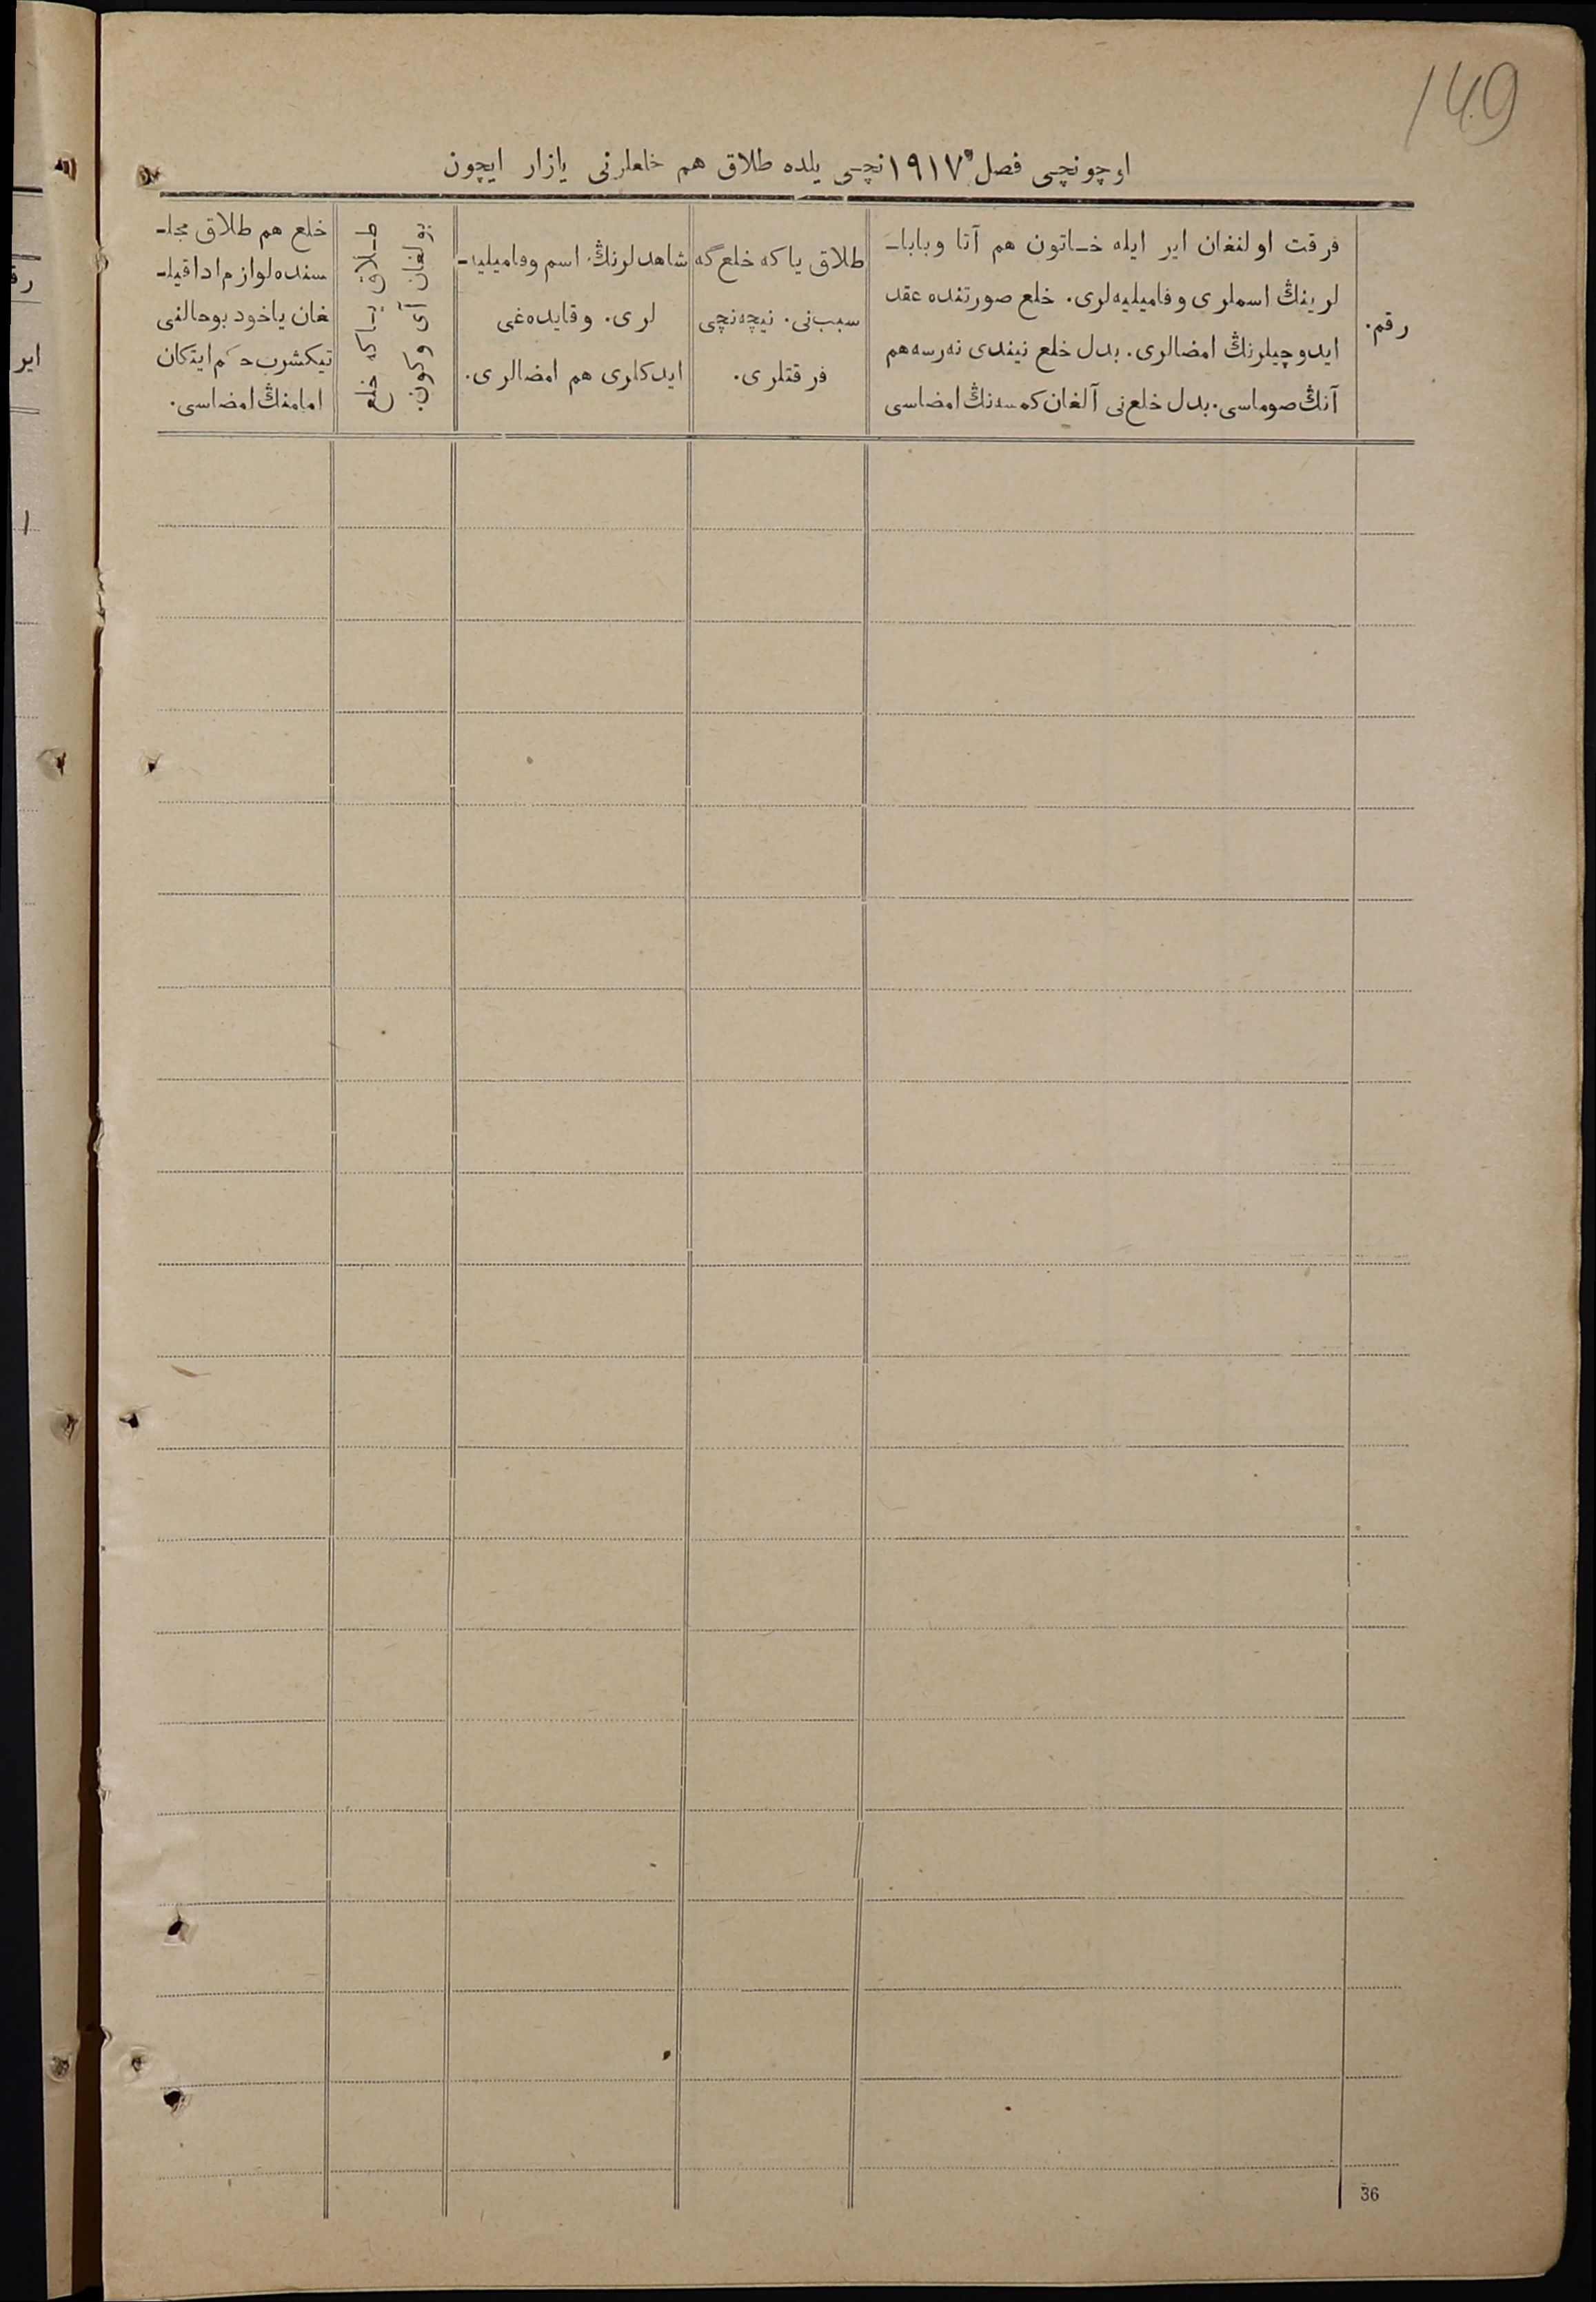 149
اوچونچی فصل ۱۹۱۷نچی یلده طلاق هم خلعلرنی یازار ایچون
رقم.
فرقت اولنغان ایر ایله خاتون هم آتا وبابا-
لرینڭ اسملری وفامیلیه‌لری. خلع صورتنده عقد
ایدوچیلرنڭ امضالری. بدل خلع نیندی نه‌رسه هم
آنڭ صوماسی. بدل خلع‌نی آلغان کمسه‌نڭ امضاسی
طلاق یا که خلع گه
سبب‌نی. نیچه‌نچی
فرقتلری.
شاهدلرنڭ اسم وفامیلیه-
لری. وقایده‌غی
ایدکلری هم امضالری.
طلاق یاکه خلع
بولغان آی وکون.
خلع هم طلاق مجل-
سنده لوازم ادا قیل-
غان یاخود بوحالنی
تیکشرب حکم ایتکان
امامنڭ امضاسی.
36
رق
ایر
۱